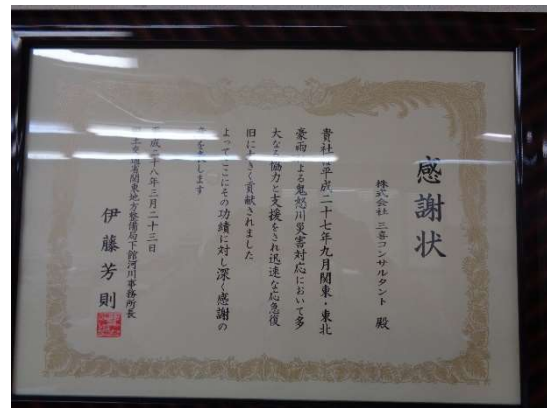 感謝状
株式会社 三喜コンサルタント 殿
貴社は平成二十七年九月関東・東北
豪雨による鬼怒川災害対応において多
大なる協力と支援をされ迅速な応急復
旧に大きく貢献されました
よってここにその功績に対し深く感謝の
意を表します
平成二十八年三月二十三日
国土交通省関東地方整備局下館河川事務所長
伊藤芳則